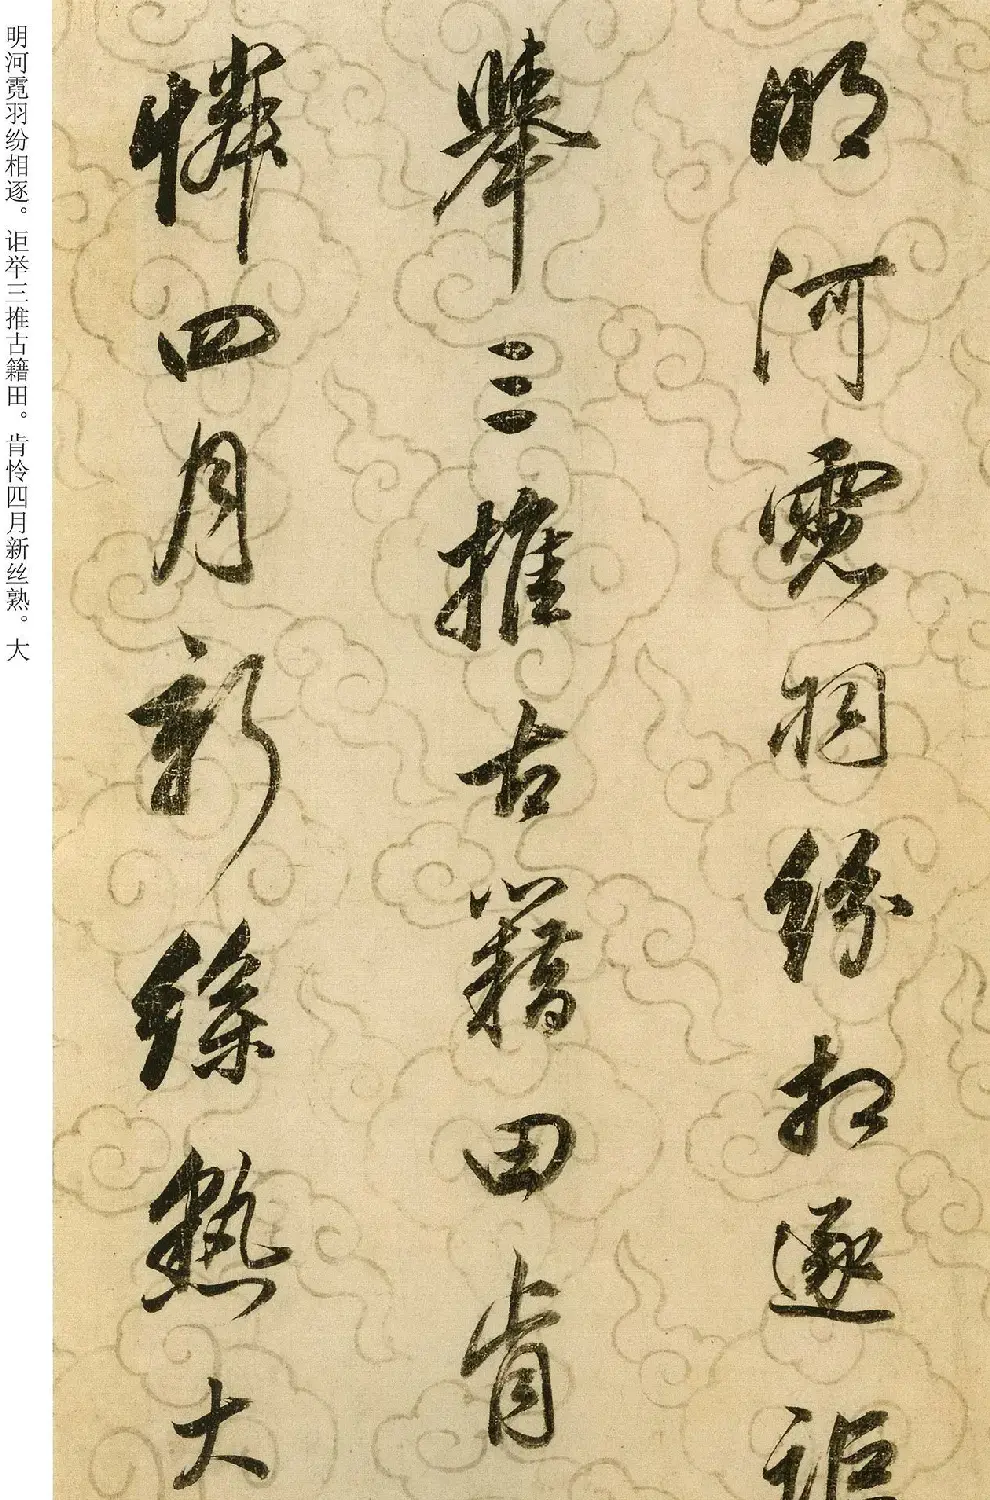 明河霓羽纷相逐。讵举三推古籍田。肯怜四月新丝熟。大
明河霓羽紛相逐詎
舉三推古籍田肯
憐四月新絲熟大